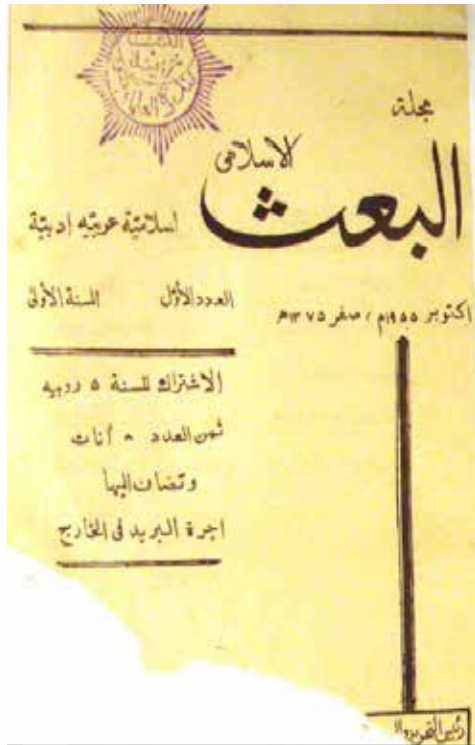 مجلة
البعث الاسلامى
اسلامية عربيه ادبية
العدد الأول السنة الأولى
اكتوبر ۱۹۵۵م / صفر ۱۳۷۵هـ
الاشتراك للسنة ۵ روبيه
ثمن العدد ۸ آنات
وتضاف اليها
اجرة البريد فى الخارج
رئيس التحرير